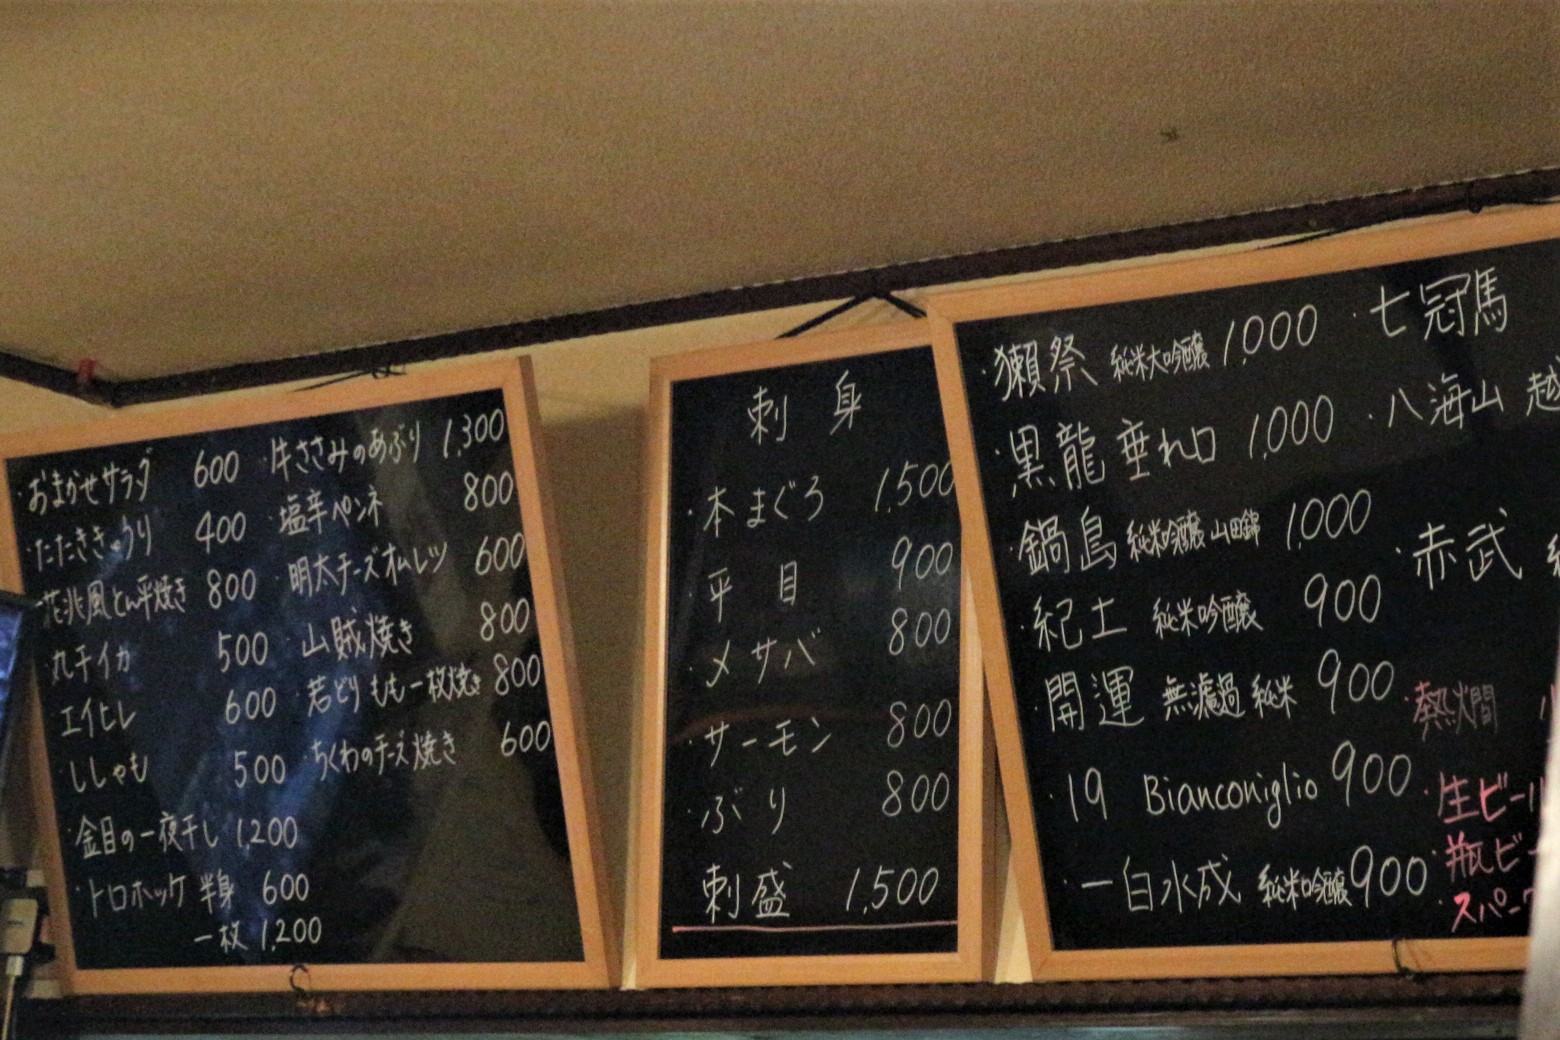 ・おまかせサラダ 600
・たたききゅうり 400
・花兆風とん平焼き 800
・丸干イカ 500
・エイヒレ 600
・ししゃも 500
・金目の一夜干し 1,200
・トロホッケ 半身 600
一枚 1,200
・牛ささみのあぶり 1,300
・塩辛ペンネ 800
・明太チーズオムレツ 600
・山賊焼き 800
・若どりもも一枚焼き 800
・ちくわのチーズ焼き 600
刺身
・本まぐろ 1,500
・平目 900
・〆サバ 800
・サーモン 800
・ぶり 800
刺盛 1,500
・獺祭 純米大吟醸 1,000
・黒龍 垂れ口 1,000
・鍋島 純米吟醸 山田錦 1,000
・紀土 純米吟醸 900
・開運 無濾過 純米 900
・19 Bianconiglio 900
・一白水成 純米吟醸 900
・七冠馬
・八海山 越
・赤武
・熱燗
・生ビール
・瓶ビー
・スパーク